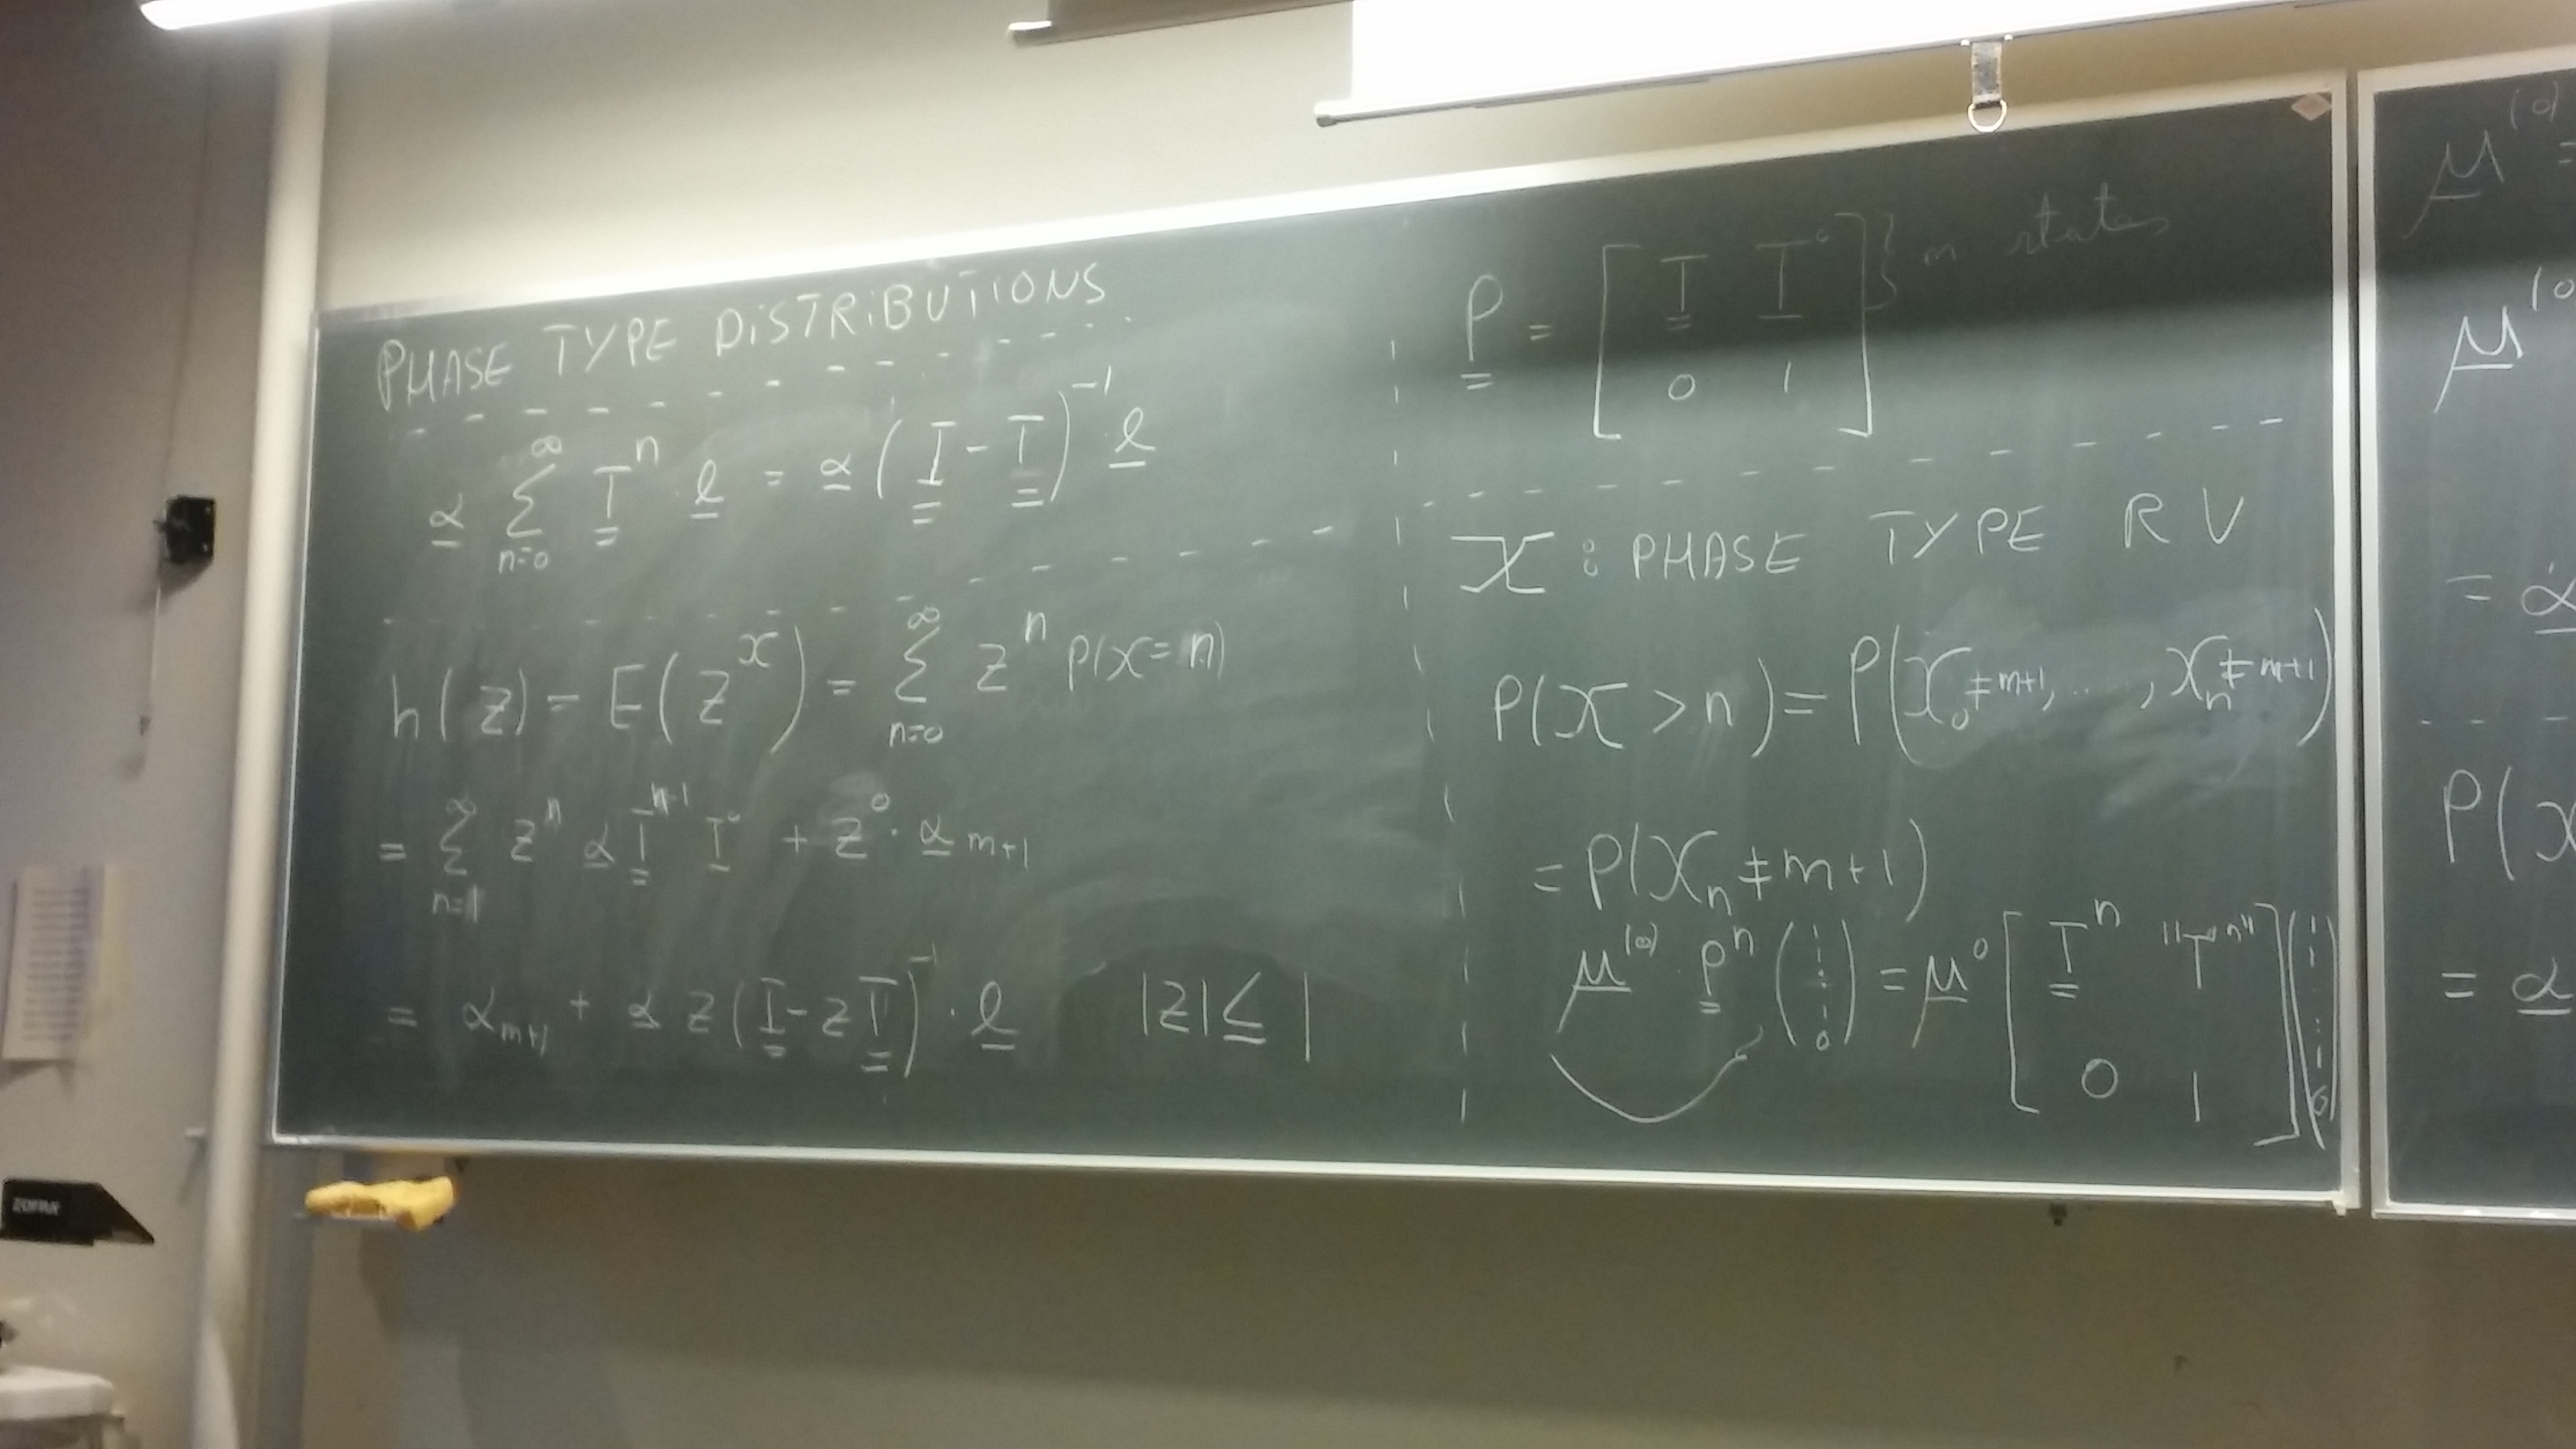 PHASE TYPE DISTRIBUTIONS
α ∑_{n=0}^{∞} T^n · e = α ( I - T )^{-1} · e
h(z) = E( z^X ) = ∑_{n=0}^{∞} z^n P(X=n)
= ∑_{n=1}^{∞} z^n α T^{n-1} T° + z^0 · α_{m+1}
= α_{m+1} + α z ( I - z T )^{-1} · e |z| ≤ 1
P = [ T T° ; 0 1 ] } m states
X : PHASE TYPE RV
P(X > n) = P( X_0 ≠ m+1, ....., X_n ≠ m+1 )
= P(X_n ≠ m+1)
μ^{(0)} P^n ( 1 ⋮ 1 0 ) = μ^0 [ T^n "T°^n" ; 0 1 ] ( 1 ⋮ 1 0 )
μ^{(0)} =
μ^{(0)}
= α
P(X
= α